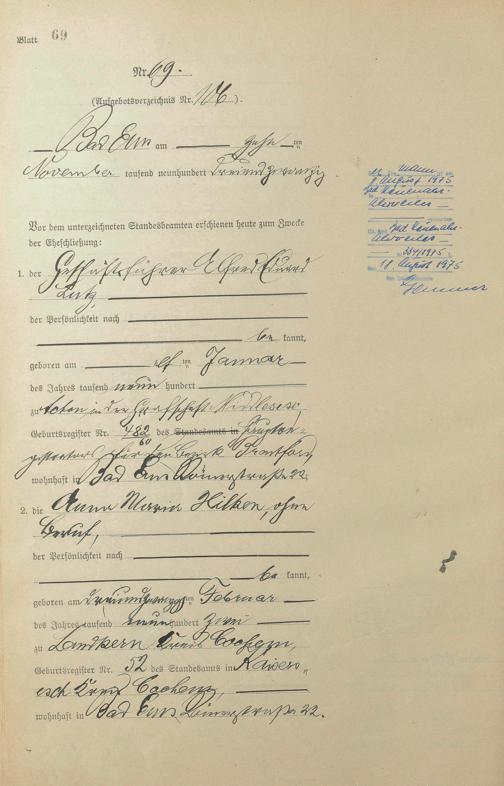 Blatt 69
Nr. 69.
(Aufgebotsverzeichnis Nr. 106).
Bad Ems am zehn ten
November tausend neunhundert dreiundzwanzig.
Vor dem unterzeichneten Standesbeamten erschienen heute zum Zwecke
der Eheschließung:
1. der Geschäftsführer Alfred Eduard
Lutz,
der Persönlichkeit nach
be kannt,
geboren am elf ten Januar
des Jahres tausend neun hundert
zu Acton in der Grafschaft Middlesex,
Geburtsregister Nr. 482 des Standesamts in
für den Bezirk Brentford
wohnhaft in Bad Ems Römerstraße 22.
2. die Anna Maria Hilken, ohne
Beruf,
der Persönlichkeit nach
be kannt,
geboren am dreiundzwanzigsten Februar
des Jahres tausend neun hundert zwei
zu Landkern Kreis Cochem,
Geburtsregister Nr. 52 des Standesamts in Kaisers-
esch Kreis Cochem,
wohnhaft in Bad Ems Römerstraße 22.
Mann
August 1975
Ahrweiler
Ahrweiler
354/1975
August 1975